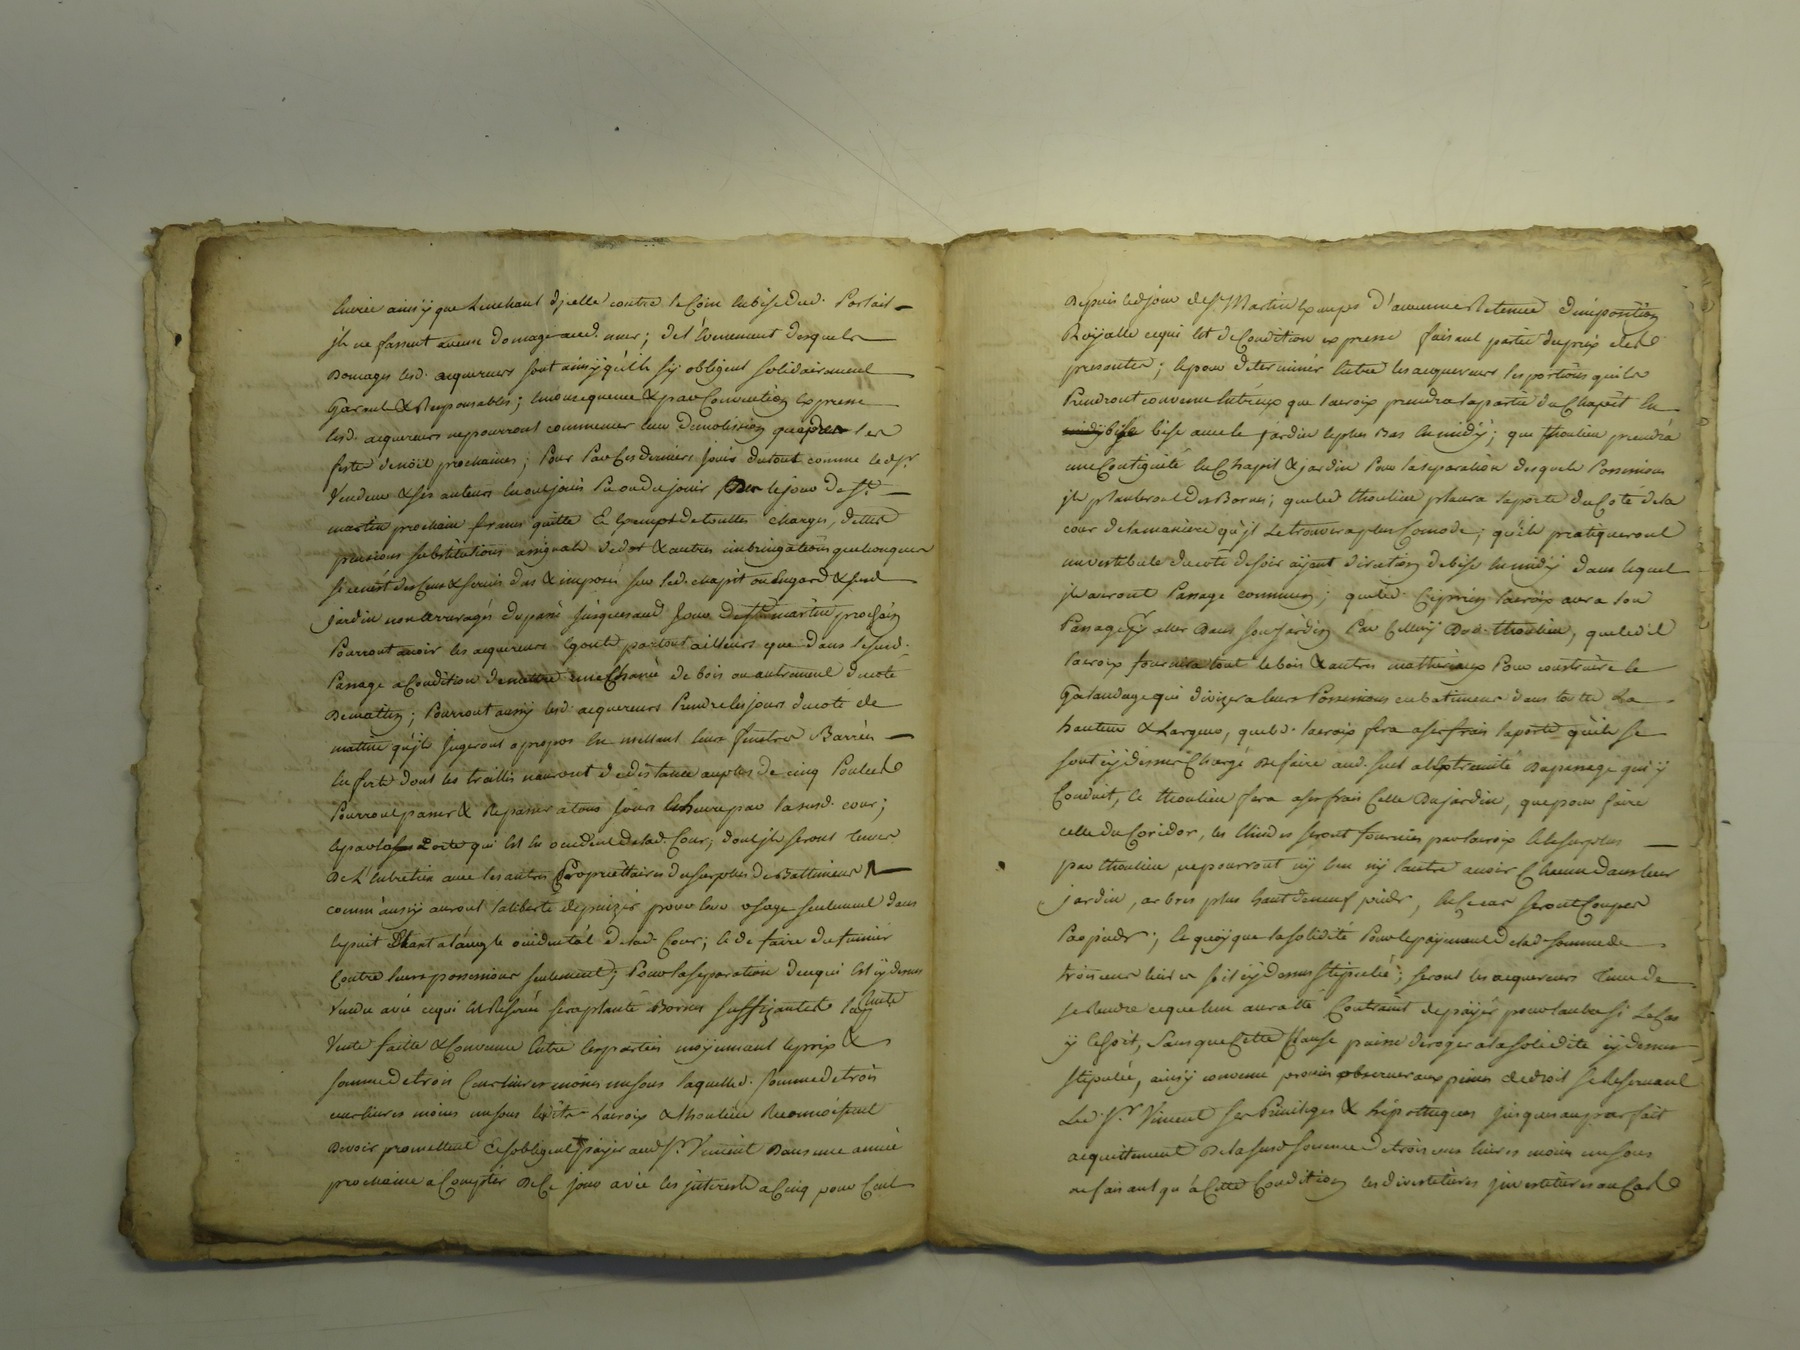 livrée ainsÿ que Lenchant d'jcelle contre le Coin en bise dud. Portail
jls ne fassent aucun domage aud. mur; de l'évenement desquels
Domages lesd. acquereurs sont ainsÿ qu'ils sÿ obligent solidairement
Garant & Responsables; en consequence & par Convention Expresse
lesd. acquereurs ne pourront commencer leur demolission qu'apres les
feste de noël prochaines; Pour Par Ces derniers jouir du tout comme led. Sr.
Vendeur & ses auteurs en ont jouis Pu ou du jouir Des le jour de St.
martin prochain francs quitte & Exempt de touttes charges, dettes
pensions substitutions assignats de dot & autres imbringations quelconques
si ce n'est des Cens & servis dus & imposés sur led. chapit ou Engard & sud.
jardin non arreragés du passé jusques aud. jour de St. martin prochain
Pourront avoir les acquereurs Egouts partout ailleurs que dans le susd.
Passage a Condition de mettre une Chanée de bois ou autrement du coté
De matin; Pourront aussÿ lesd. acquereurs Prendre les jours du coté de
matin qu'jls jugeront a propos En mettant leurs fenetres Barrées
En fert dont les traillis nauront de distance au plus de cinq Pouces
Pourront passer & Repasser a tous jours & heure par la susd. cour;
& par la Porte qui Est En occident de lad. Cour; dont jls seront Tenus
De L'Entretien avec les autres Propriettaires du surplus de Battiments
comm'aussÿ auront la liberté de puizer pour leur usage seulement dans
le puit Etant a l'angle occidental de lad. Cour; & de faire du fumier
Contre leurs possessions seulement; Pour la separation de ce qui Est cÿ dessus
Vendu avec ce qui Est Reservé sera planté Bornes suffizantes laditte
Vente faitte & Convenue Entre les parties moÿennant le prix &
somme de trois Cent livres moins un sous laquelle d. somme de trois
cent livres moins un sous lesdits Lacroix & Thoulieu Reconnoissent
Devoir promettent & sobligent paÿer aud. Sr. Vincent Dans une année
prochaine a Compter De Ce jour avec les jnterests a Cinq pour Cent
Depuis led. jour de St. Martin Exempts d'aucunne Retenue d'imposition
Roÿalle ce qui Est de Condition expresse faisant partie du prix des
presentes; & pour determiner Entre les acquereurs les portions qu'ils
Prendront convenu Entreux que lacroix prendra la partie du Chapit En
bise avec le jardin le plus Bas En midÿ; que thoulieu prendra
une Contiguité En Chapit & jardin Pour la separation desquels Possessions
jls planteront des Bornes; que led. thoulieu placera la porte du Coté de la
cour de la maniere qu'jl Le trouvera plus Comode; qu'ils pratiqueront
un vestibule du coté de soir aÿant direction de bise En midÿ dans lequel
jls auront Passage commun; que led. lacroix aura son
Passage pr ÿ aller Dans son jardin Par Celluÿ Dud. thoulieu, que led.
lacroix fournira tout le bois & autres matheriaux Pour construire le
Galandage qui divizera leurs Possessions en batiments dans toutte La
hauteur & Largeur, que led. lacroix fera a ses frais la porte qu'ils se
sont cÿ dessus Chargé De faire aud. suel a l'Extremité Du passage qui ÿ
Conduit, & thoulieu fera a ses frais Celle Du jardin, que pour faire
celle du Coridor, les seront fournies par lacroix & le surplus
par thoulieu ne pourront nÿ lun nÿ l'autre avoir Chacun dans leur
jardin, arbres plus haut de neuf pieds, En ce cas seront Coupés
Par pieds; & quoÿ que la solidité Pour le paÿement de lad. somme de
trois cent livres soit cÿ dessus stipulée; seront les acquereurs Tenu de
se Rendre ce que lun aura été Contraint de paÿer pour lautre si Le Cas
ÿ Echoit, sans que Cette Clause puisse deroger a la solidité cÿ dessus
stipulée, ainsÿ convenu promis observer aux peines de droit se Reservant
Led. Sr. Vincent ses Privileges & hÿpotteques jusques au parfait
acquittement De la susd. somme de trois cens livres moins un sous
ne faisant qu'à Cette Condition les divestitures jnvestitures au Cas